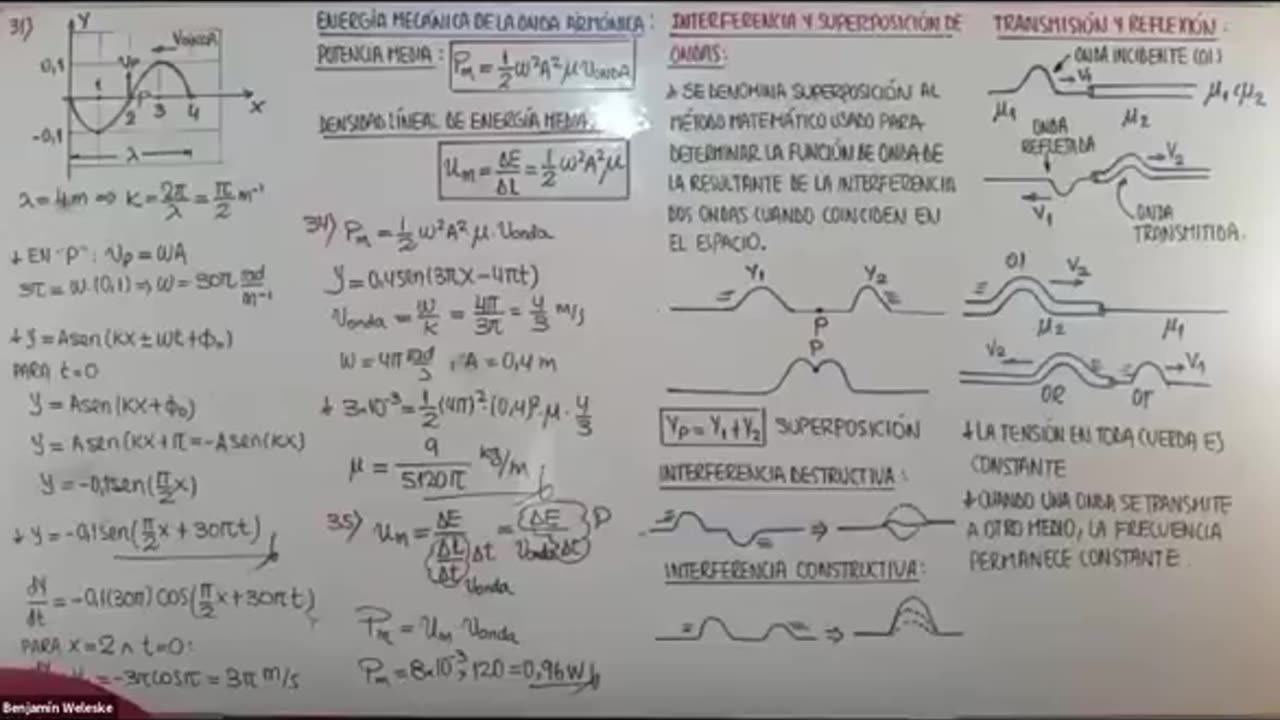 31)
Y
VONDA
0,1
VP
1
P
2
3
4
X
-0,1
λ
λ=4m ⇒ K=2π/λ=π/2 m⁻¹
↓ EN "P": Vp=ωA
3π=ω.(0,1)⇒ω=30π rad/m⁻¹
↓ Y=Asen(KX±ωt+ϕ₀)
PARA t=0
Y=Asen(KX+ϕ₀)
Y=Asen(KX+π=-Asen(KX)
Y=-0,1sen(π/2 X)
↓ Y=-0,1sen(π/2 X+30πt)
dY/dt=-0,1(30π)COS(π/2 X+30πt)
PARA X=2 ∧ t=0:
=-3πCOSπ=3π m/s
ENERGÍA MECÁNICA DE LA ONDA ARMÓNICA:
POTENCIA MEDIA: Pm=1/2 ω²A²μ VONDA
DENSIDAD LÍNEAL DE ENERGÍA MEDIA:
Um=ΔE/ΔL=1/2 ω²A²μ
34) Pm=1/2 ω²A²μ.Vonda
Y=0,4sen(3πX-4πt)
Vonda=ω/K=4π/3π=4/3 m/s
ω=4π rad/s, A=0,4m
↓ 3×10⁻³=1/2(4π)².(0,4)².μ.4/3
μ=9/5120π kg/m
35) Um=ΔE/(ΔL/Δt)Δt=ΔE/(Vonda.Δt) P
Vonda
Pm=Um Vonda
Pm=8×10⁻³.120=0,96W
INTERFERENCIA Y SUPERPOSICIÓN DE
ONDAS:
↓ SE DENOMINA SUPERPOSICIÓN AL
MÉTODO MATEMÁTICO USADO PARA
DETERMINAR LA FUNCIÓN DE ONDA DE
LA RESULTANTE DE LA INTERFERENCIA
DOS ONDAS CUANDO COINCIDEN EN
EL ESPACIO.
Y₁
Y₂
P
P
Yp=Y₁+Y₂ SUPERPOSICIÓN
INTERFERENCIA DESTRUCTIVA:
INTERFERENCIA CONSTRUCTIVA:
TRANSMISIÓN Y REFLEXIÓN:
ONDA INCIDENTE (OI)
V₁
μ₁
μ₂
μ₁<μ₂
ONDA
REFLETADA
V₂
V₁
ONDA
TRANSMITIDA.
OI
V₂
μ₂
μ₁
V₂
V₁
OR
OT
↓ LA TENSIÓN EN TODA CUERDA ES
CONSTANTE
↓ CUANDO UNA ONDA SE TRANSMITE
A OTRO MEDIO, LA FRECUENCIA
PERMANECE CONSTANTE.
Benjamín Weleske